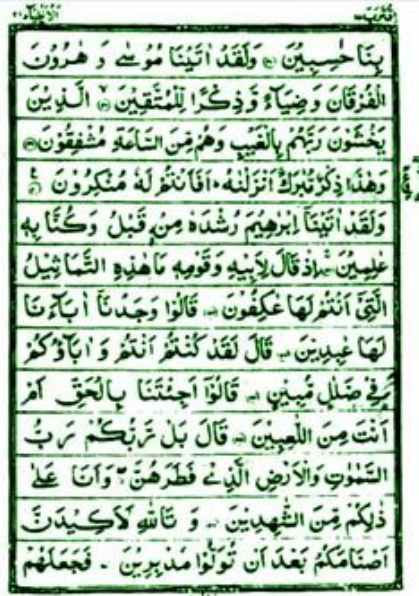 اقترب ١٧ الانبیاء ٢١
بِنَا حٰسِبِیْنَ ۝ وَلَقَدْ اٰتَیْنَا مُوْسٰی وَ هٰرُوْنَ
الْفُرْقَانَ وَضِیَآءً وَّذِكْرًا لِّلْمُتَّقِیْنَ ۝ الَّذِیْنَ
یَخْشَوْنَ رَبَّهُمْ بِالْغَیْبِ وَهُمْ مِّنَ السَّاعَةِ مُشْفِقُوْنَ ۝
وَهٰذَا ذِكْرٌ مُّبٰرَكٌ اَنْزَلْنٰهُ ؕ اَفَاَنْتُمْ لَهٗ مُنْكِرُوْنَ ۝ ع
وَلَقَدْ اٰتَیْنَاۤ اِبْرٰهِیْمَ رُشْدَهٗ مِنْ قَبْلُ وَكُنَّا بِهٖ
عٰلِمِیْنَ ۝ اِذْ قَالَ لِاَبِیْهِ وَقَوْمِهٖ مَا هٰذِهِ التَّمَاثِیْلُ
الَّتِیْۤ اَنْتُمْ لَهَا عٰكِفُوْنَ ۝ قَالُوْا وَجَدْنَاۤ اٰبَآءَنَا
لَهَا عٰبِدِیْنَ ۝ قَالَ لَقَدْ كُنْتُمْ اَنْتُمْ وَ اٰبَآؤُكُمْ
فِیْ ضَلٰلٍ مُّبِیْنٍ ۝ قَالُوْۤا اَجِئْتَنَا بِالْحَقِّ اَمْ
اَنْتَ مِنَ اللّٰعِبِیْنَ ۝ قَالَ بَلْ رَّبُّكُمْ رَبُّ
السَّمٰوٰتِ وَالْاَرْضِ الَّذِیْ فَطَرَهُنَّ ۖ وَاَنَا عَلٰی
ذٰلِكُمْ مِّنَ الشّٰهِدِیْنَ ۝ وَ تَاللّٰهِ لَاَكِیْدَنَّ
اَصْنَامَكُمْ بَعْدَ اَنْ تُوَلُّوْا مُدْبِرِیْنَ ۝ فَجَعَلَهُمْ